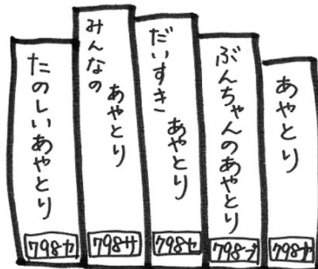 たのしいあやとり
798カ
みんなの
あやとり
798サ
だいすき
あやとり
798セ
ぶんちゃんのあやとり
あやとり